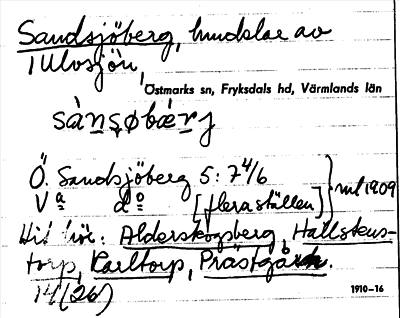 Sandsjöberg, hundslae av
i Ulvsjön,
Östmarks sn, Fryksdals hd, Värmlands län
sànsøbærj
Ö. Sandsjöberg 5: 7 4/6
V a d o [flera ställen] } ml 1909
Hit hör: Alderskogsberg, Hallstens-
torp, Karltorp, Prästgårn.
14 (26)
1910-16